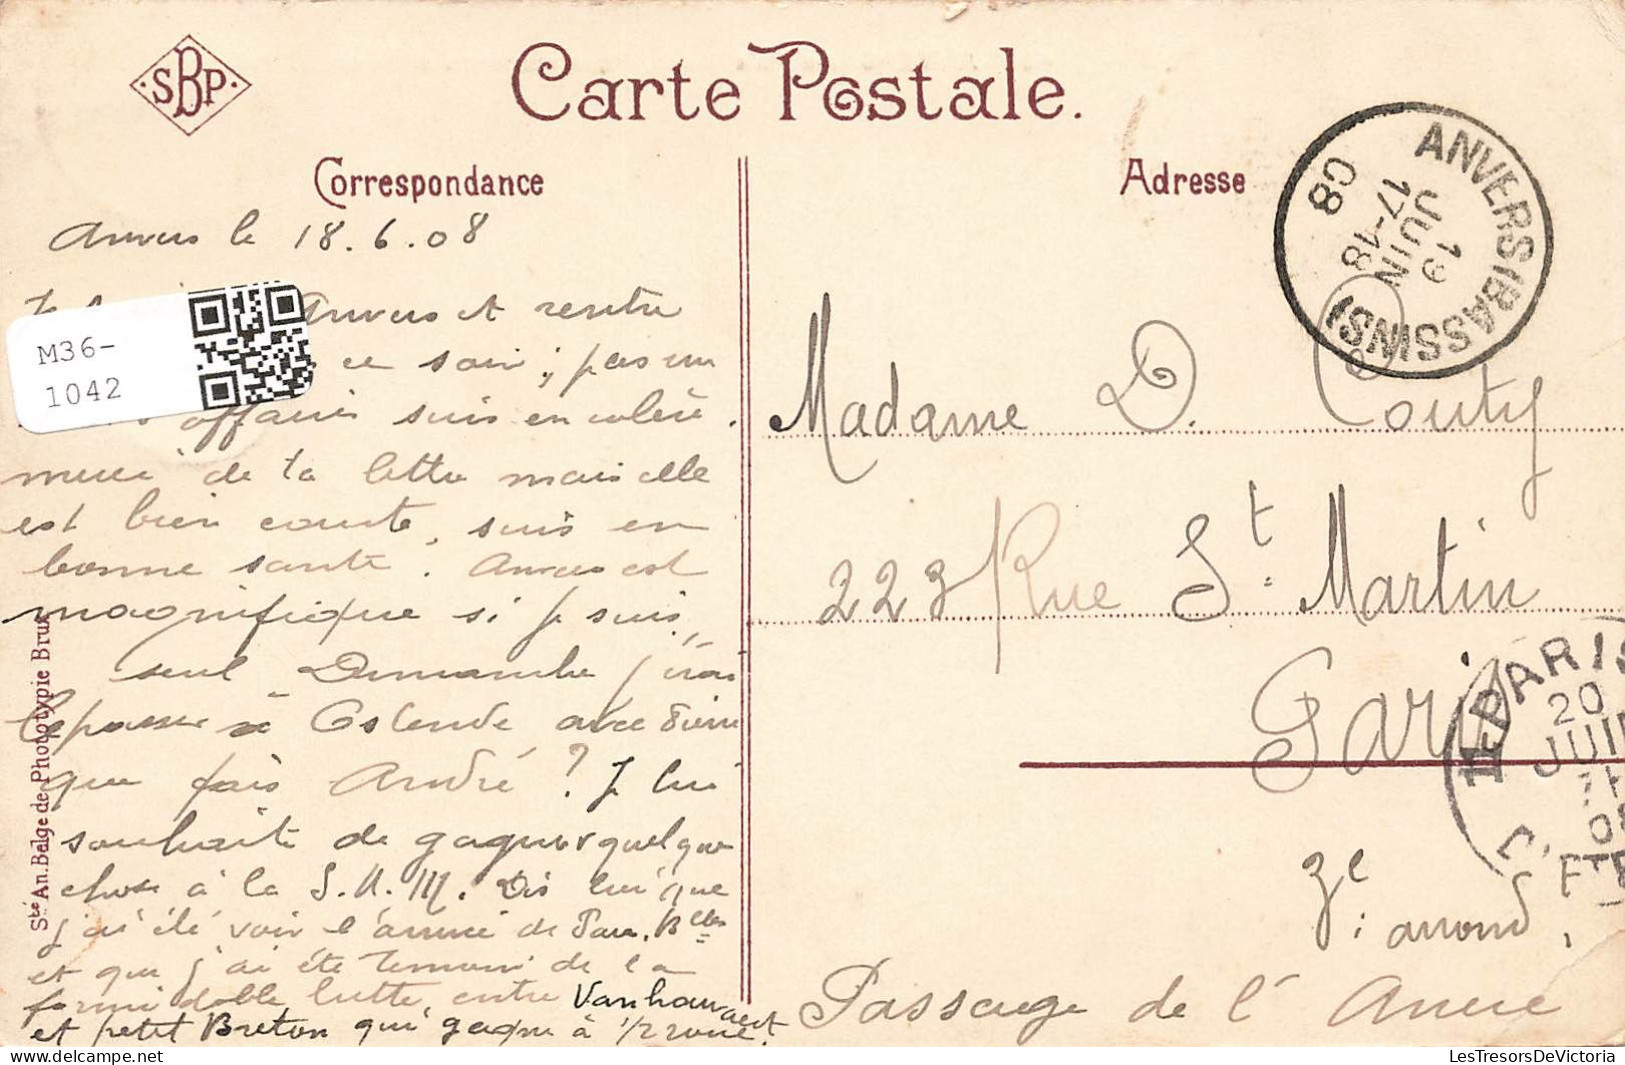 SBP
Carte Postale.
Correspondance
Adresse
ANVERS (BASSINS)
19
JUIN
17-18
08
Anvers le 18.6.08
Anvers et rentre
M36-
1042
ce soir ; pas un
affaires suis en colère.
merci de ta lettre mais elle
est bien courte, suis en
bonne santé. Anvers est
magnifique si je suis
seul Dimanche j'irai
passer à Ostende avec
que fais André ? Je lui
souhaite de gagner quelque
chose à la S.A.M. Dis lui que
j'ai été voir l'arrivée de Paris. Blles
et que j'ai été temoin de la
formidable lutte entre Vanhouwaert
et petit Breton qui gagne à 1/2 roue.
Sté An. Belge de Phototypie Brux
Madame D. Couty
223 Rue St. Martin
Paris
PARIS
20
JUIN
08
3e arrond.
Passage de l'Ancre
LesTresorsDeVictoria